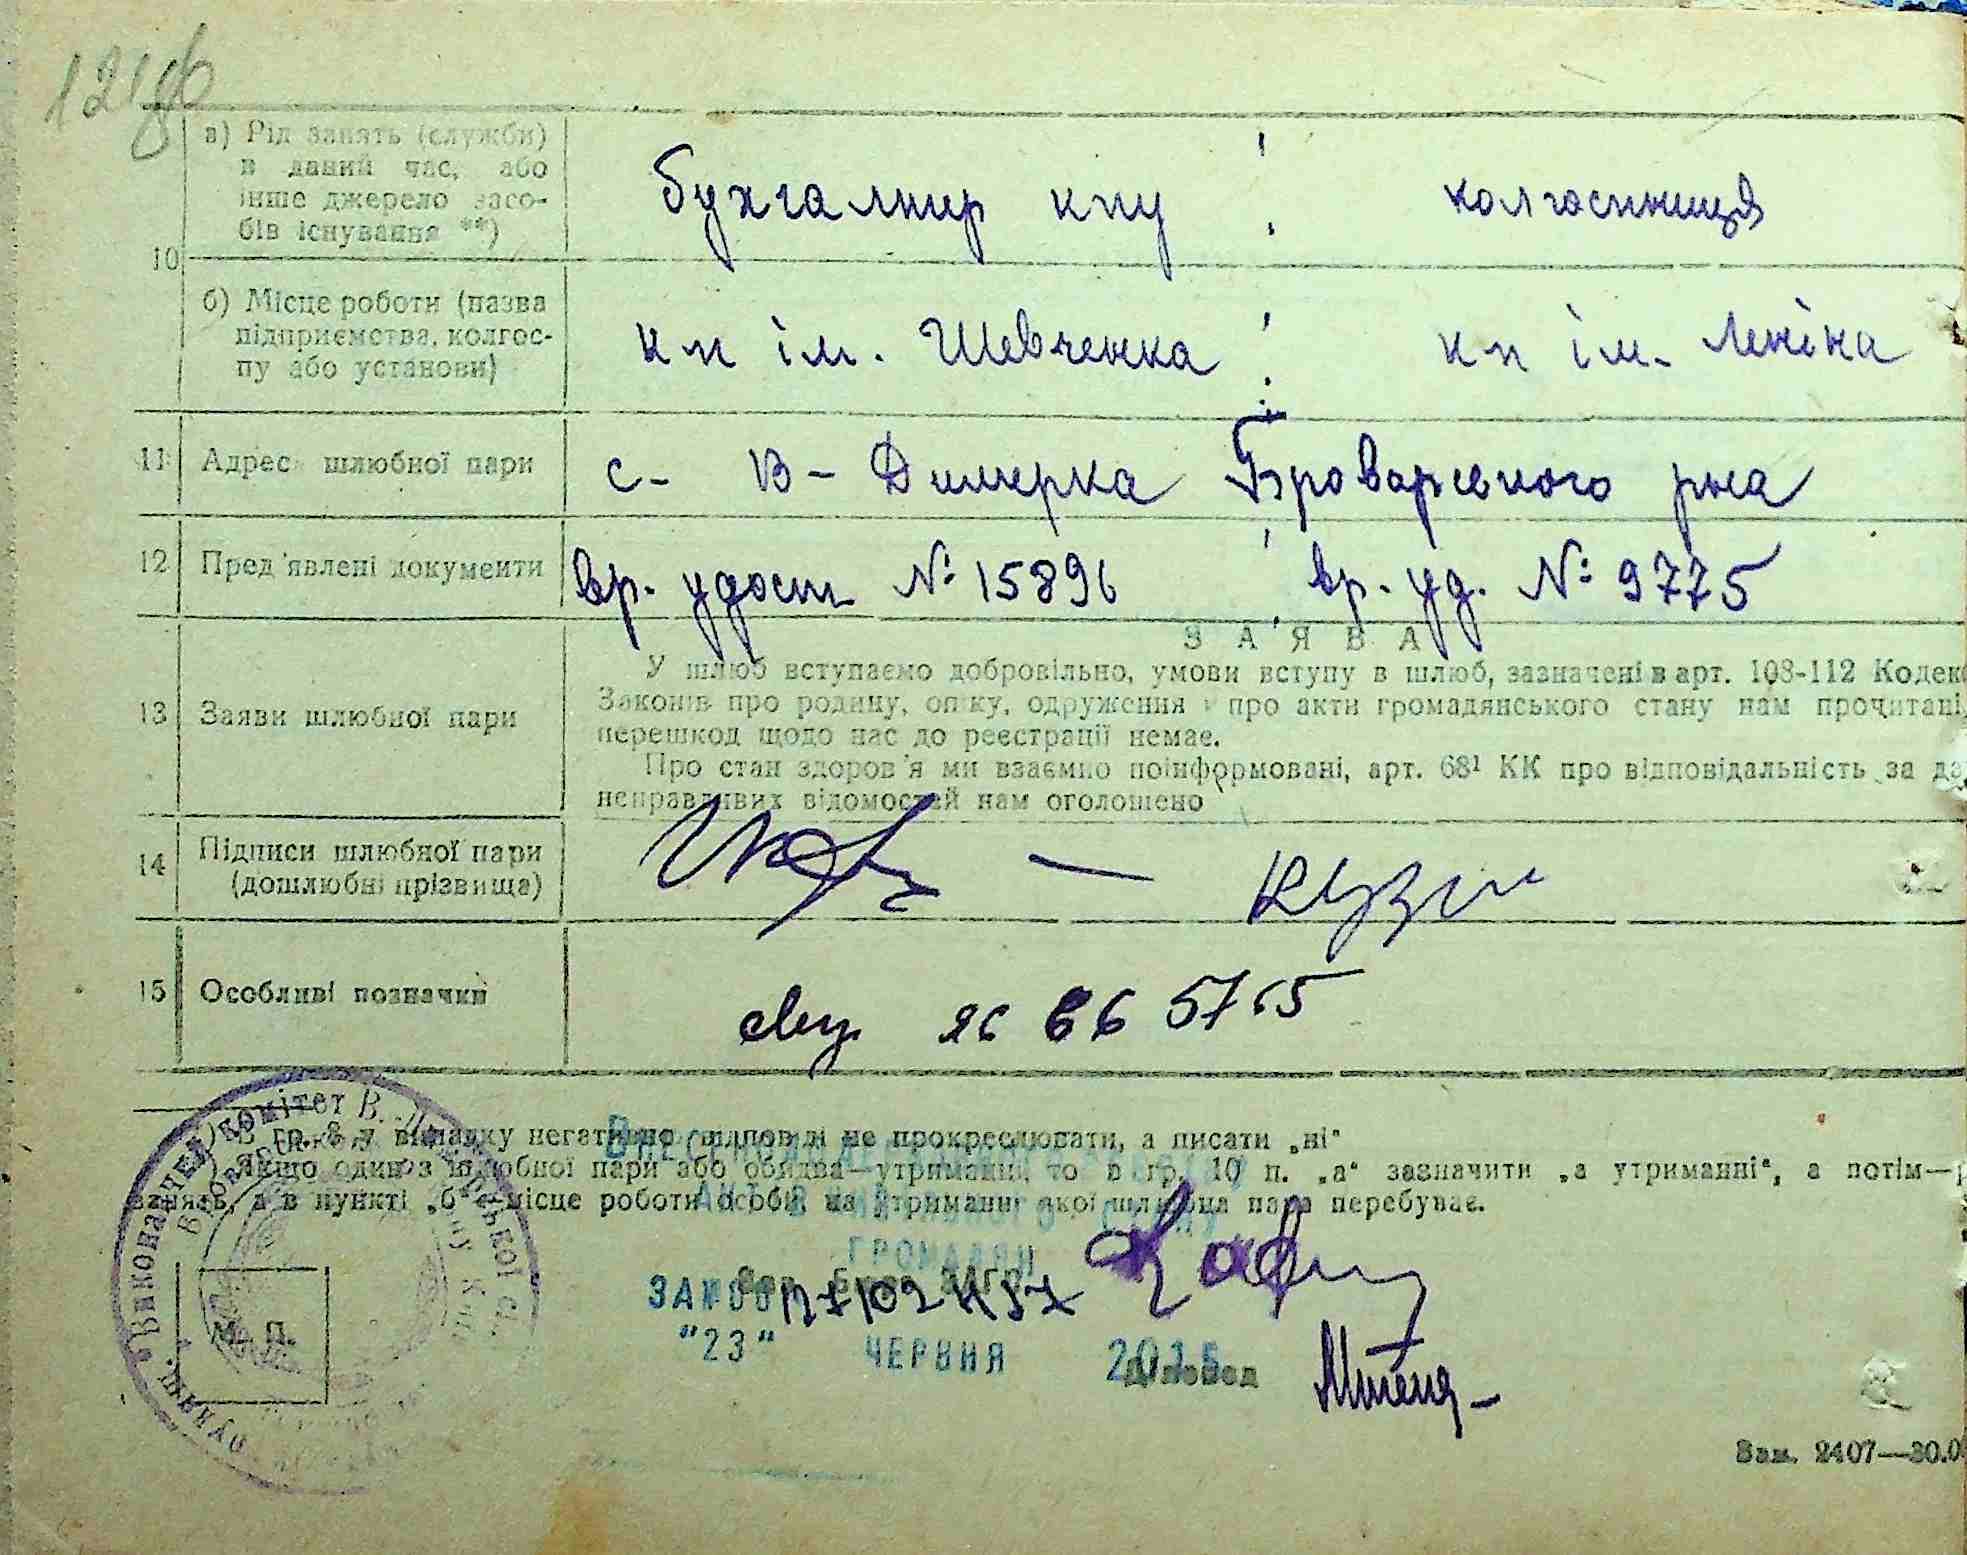 а) Рід занять (служби)
в даний час, або
інше джерело засо-
бів існування **)
бухгалтер кпу
колгоспниця
10
б) Місце роботи (назва
підприємства, колгос-
пу або установи)
кп ім. Шевченка
кп ім. Леніна
11 Адрес шлюбної пари
с- В- Димерка Броварського рна
12 Пред'явлені документи
вр. удост № 15896
вр. уд. № 9775
ЗАЯВА
13 Заяви шлюбної пари
У шлюб вступаємо добровільно, умови вступу в шлюб, зазначені в арт. 108-112 Кодек
Законів про родину, опіку, одруження і про акти громадянського стану нам прочитані,
перешкод щодо нас до реєстрації немає.
Про стан здоров'я ми взаємно поінформовані, арт. 68¹ КК про відповідальність за да
неправдивих відомостей нам оголошено
14 Підписи шлюбної пари
(дошлюбні прізвища)
15 Особливі позначки
*) В гр. 8 у випадку негативної відповіді не прокреслювати, а писати „ні"
**) Якщо один з шлюбної пари або обидва—утриманці, то в гр. 10 п. „а" зазначити „а утриманні", а потім—р
занять, а в пункті „б" місце роботи особи, на утриманні якої шлюбна пара перебуває.
ГРОМАДЯН
Зав. Бюро ЗАГС
"23" ЧЕРВНЯ 2015
Діловод
М. П.
Виконавчий комітет В.
Зам. 2407—30.0